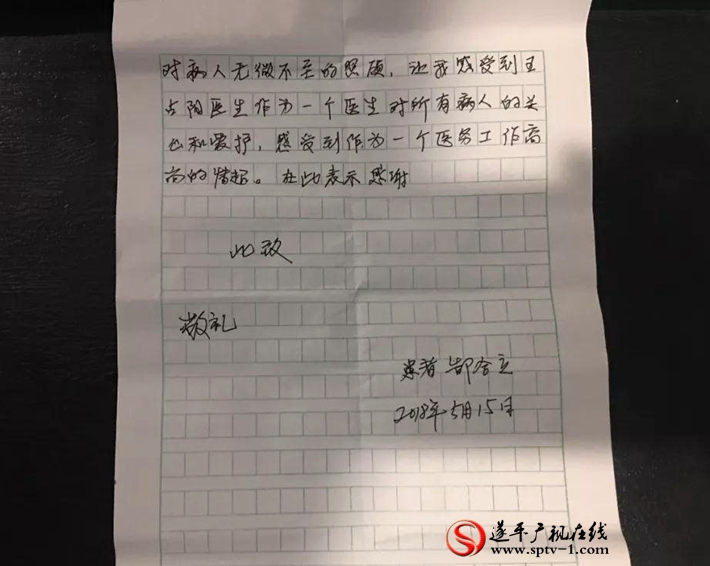 对病人无微不至的照顾，让我感受到王
占阳医生作为一个医生对所有病人的关
心和爱护，感受到作为一个医务工作高
尚的情操。在此表示感谢
此致
敬礼
患者 郜合立
2018年5月15日
遂平广视在线
www.sptv-1.com